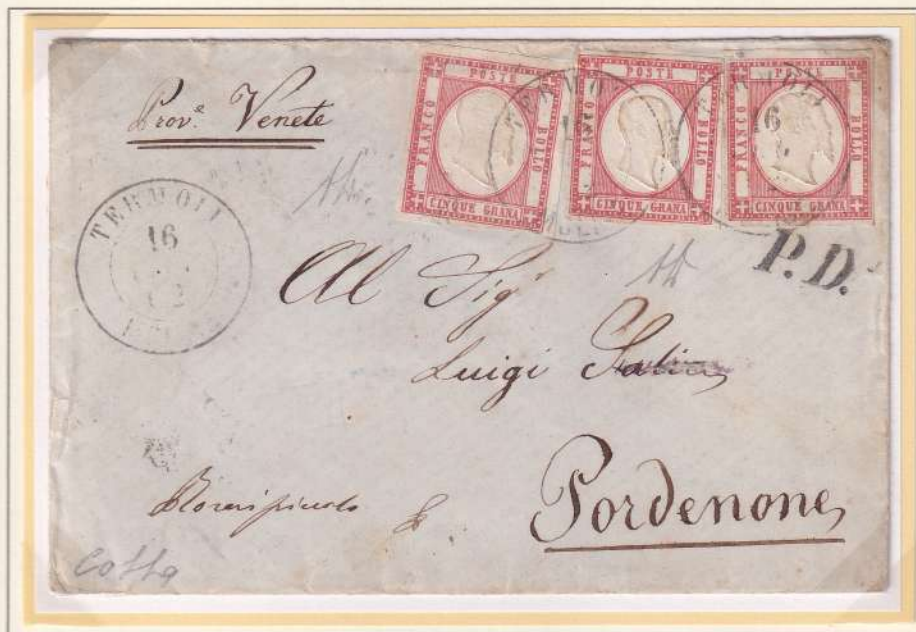 Prov.e Venete
POSTE
FRANCO
BOLLO
CINQUE GRANA
POSTE
FRANCO
BOLLO
CINQUE GRANA
POSTE
FRANCO
BOLLO
CINQUE GRANA
TERMOLI
16
TERMOLI
16
P.D.
Al Sigr
Luigi
Pordenone
Cotta